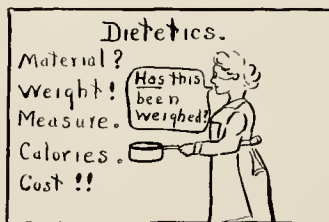 Dietetics.
Material?
Weight!
Measure.
Calories.
Cost!!
Has this
been
weighed?